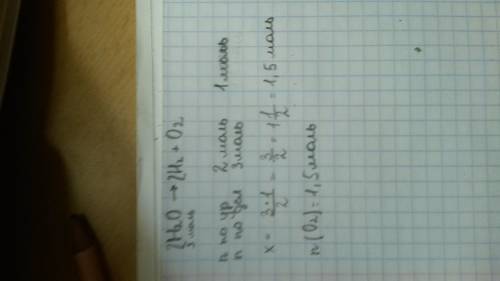 2H₂O → 2H₂ + O₂
3 моль
n по ур 2 моль 1 моль
n по усл 3 моль
x = 3·1/2 = 3/2 = 1 1/2 = 1,5 моль
n(O₂) = 1,5 моль